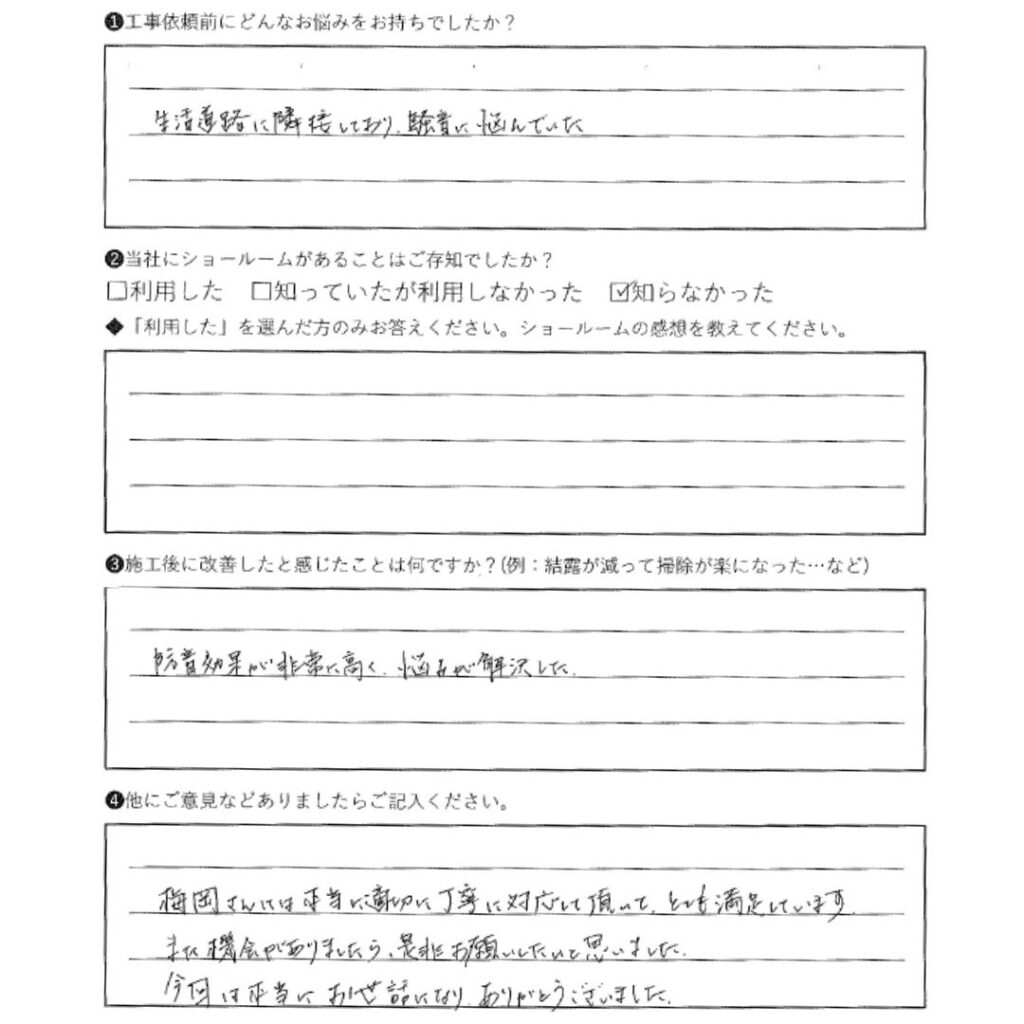 ❶工事依頼前にどんなお悩みをお持ちでしたか？
生活道路に隣接しており、騒音に悩んでいた
❷当社にショールームがあることはご存知でしたか？
□利用した □知っていたが利用しなかった ☑知らなかった
◆「利用した」を選んだ方のみお答えください。ショールームの感想を教えてください。
❸施工後に改善したと感じたことは何ですか？(例：結露が減って掃除が楽になった…など)
防音効果が非常に高く、悩みが解決した。
❹他にご意見などありましたらご記入ください。
梅岡さんには本当に適切に丁寧に対応して頂いて、とても満足しています。
また機会がありましたら、是非お願いしたいと思いました。
今回は本当にお世話になり、ありがとうございました。